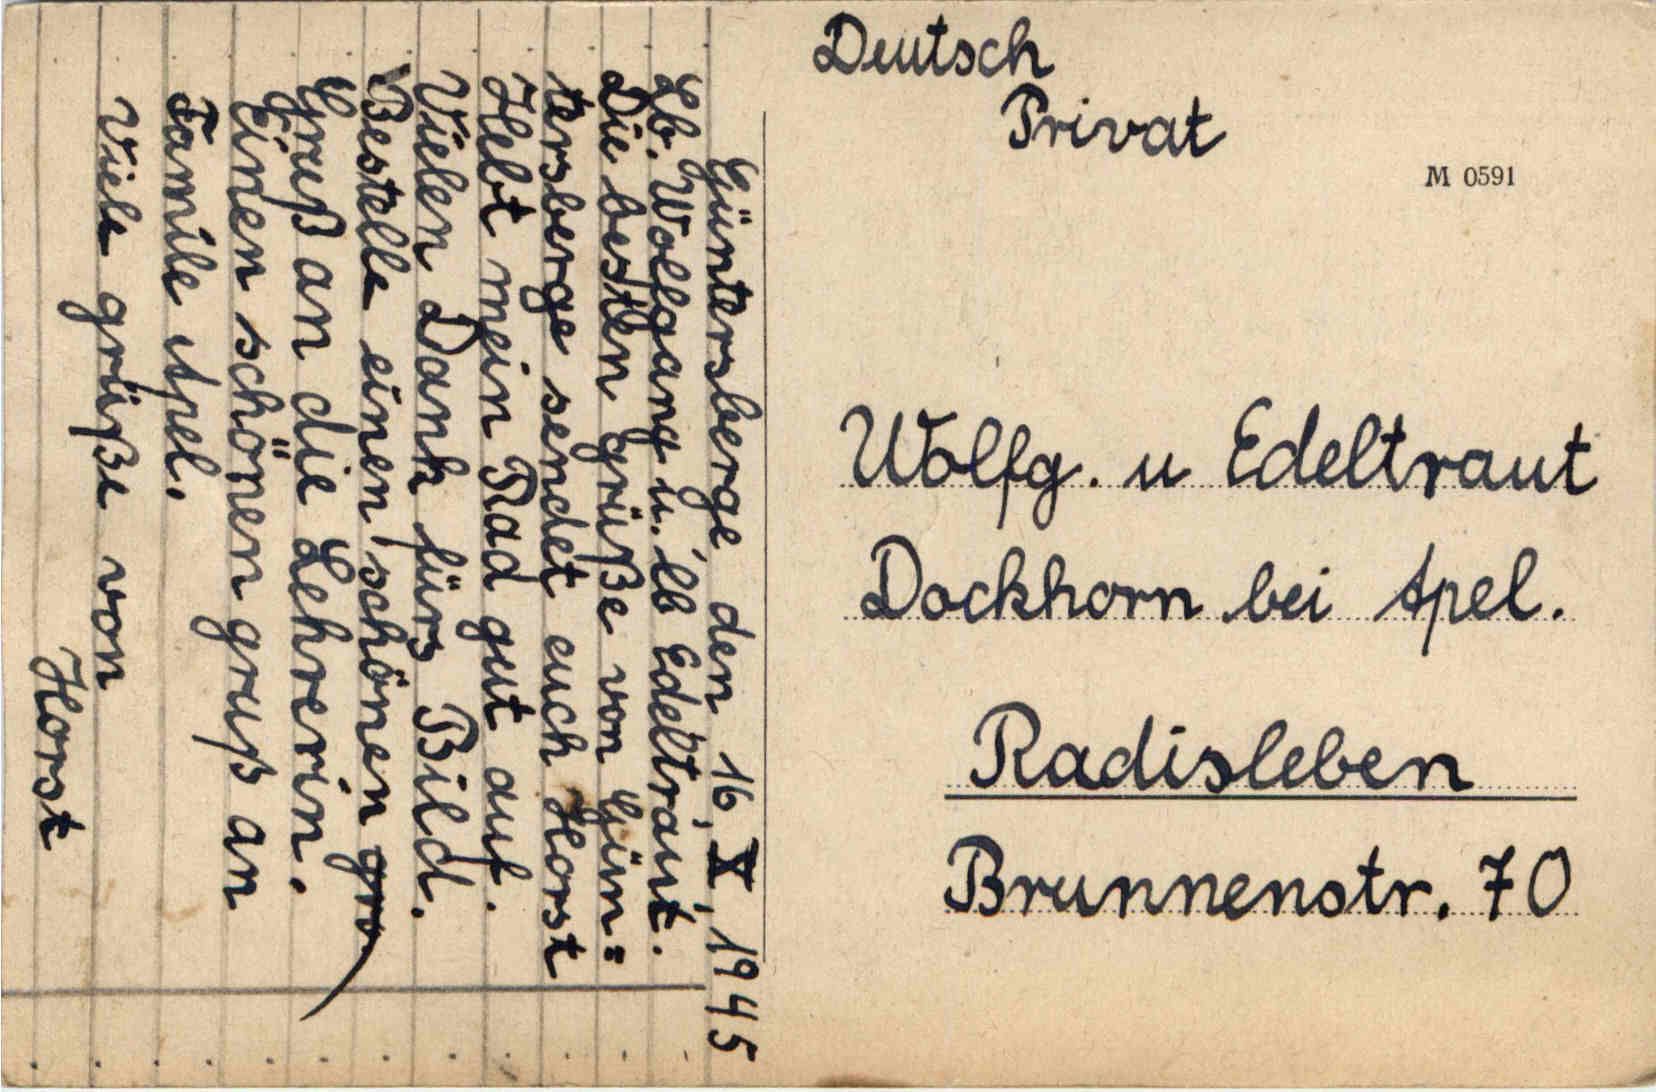 Güntersberge den 16, X, 1945
Lb. Wolfgang u. lb Edeltraut.
Die besten grüße von Gün=
tersberge sendet euch Horst
Hebt mein Rad gut auf.
Vielen Dank fürs Bild.
Bestelle einen schönen gro
Gruß an die Lehrerin.
Einen schönen gruß an
Famile Apel.
Viele grüße von
Horst
Deutsch
Privat
M 0591
Wolfg. u Edeltraut
Dockhorn bei Apel.
Radisleben
Brunnenstr. 70